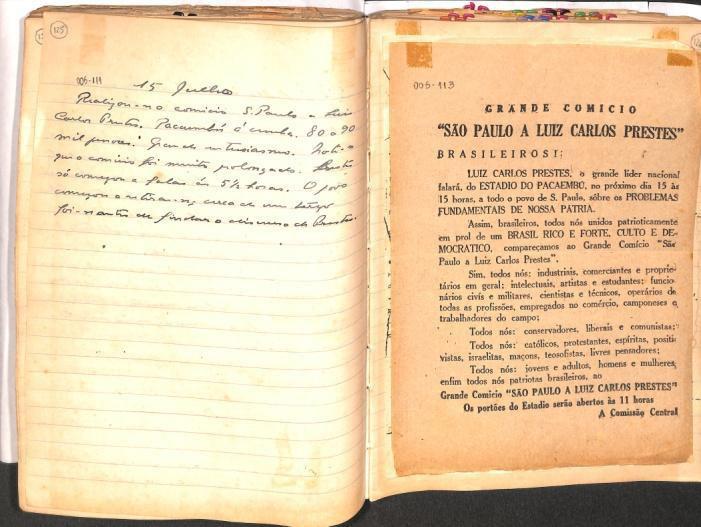 125
005-111
15 Julho
Realizou-se comicio S. Paulo a Luis
Carlos Prestes. Pacaembú á cunha. 80 a 90
mil pessoas. Grande entusiasmo. Noto
que o comicio foi muito prolongado. Prestes
só começou a falar ás 5½ horas. O povo
começou a retirar-se; cerca de um terço
foi-se antes de findar o discurso de Prestes.
005-113
GRANDE COMICIO
"SÃO PAULO A LUIZ CARLOS PRESTES"
BRASILEIROS!;
LUIZ CARLOS PRESTES, o grande lider nacional
falará, do ESTADIO DO PACAEMBÚ, no próximo dia 15 às
15 horas, a todo o povo de S. Paulo, sôbre os PROBLEMAS
FUNDAMENTAIS DE NOSSA PATRIA.
Assim, brasileiros, todos nós unidos patrioticamente
em prol de um BRASIL RICO E FORTE, CULTO E DE-
MOCRATICO, compareçamos ao Grande Comício "São
Paulo a Luiz Carlos Prestes".
Sim, todos nós: industriais, comerciantes e proprie-
tários em geral; intelectuais, artistas e estudantes; funcio-
nários civís e militares, cientistas e técnicos, operários de
todas as profissões, empregados no comércio, camponeses e
trabalhadores do campo;
Todos nós: conservadores, liberais e comunistas;
Todos nós: católicos, protestantes, espíritas, positi-
vistas, israelitas, maçons, teosofistas, livres pensadores;
Todos nós: jovens e adultos, homens e mulheres,
enfim todos nós patriotas brasileiros, ao
Grande Comicio "SÃO PAULO A LUIZ CARLOS PRESTES"
Os portões do Estadio serão abertos às 11 horas
A Comissão Central